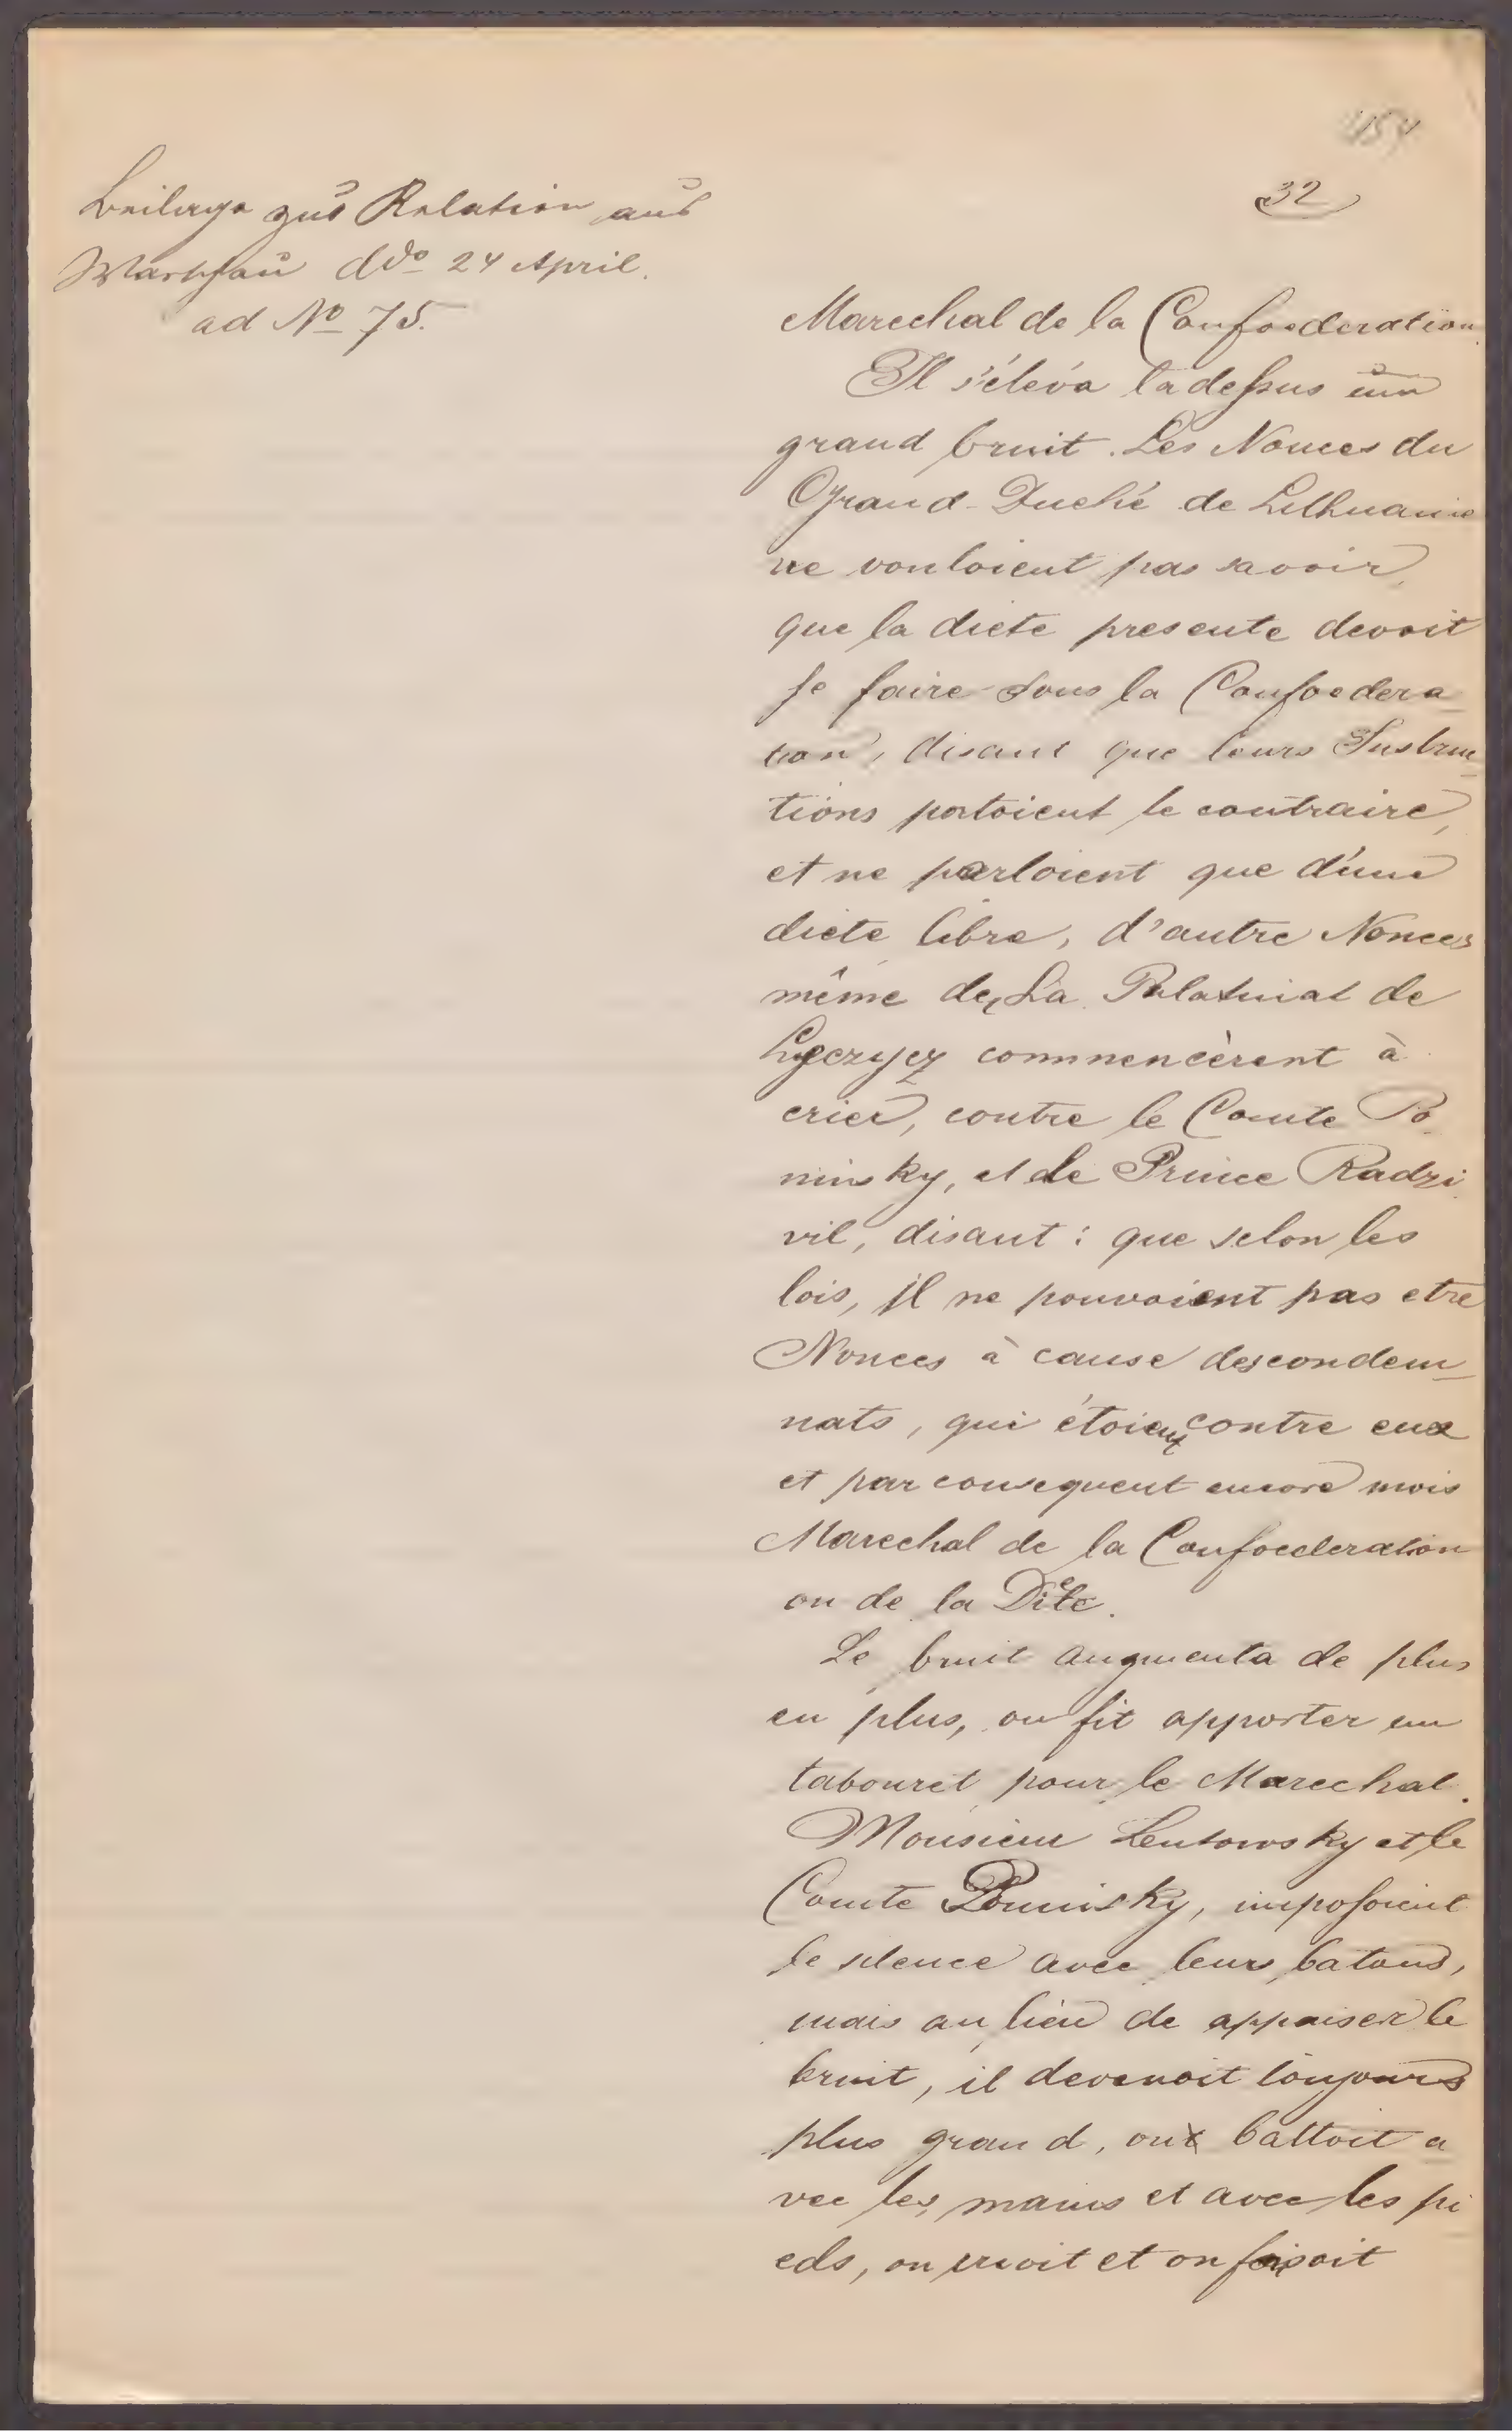 Beilage zur Relation aus
Warschau ddo 24 April.
ad No 75.
32
Marechal de la Confoederation.
Il s'éléva ladessus un
grand bruit. Les Nonces du
Grand-Duché de Lithuanie
ne vouloient pas savoir,
que la diete presente devoit
se faire sous la Confoedera-
tion, disant que leurs Instruc-
tions portoient le contraire,
et ne parloient que d'une
diete libre, d'autre Nonces
même de La Palatinat de
Lęczycz commencèrent à
crier, contre le Comte Po-
ninsky, et de Prince Radzi-
vil, disant: que selon les
lois, il ne pouvoient pas etre
Nonces à cause des condem-
nats, qui étoient contre eux
et par consequent encore mois
Marechal de la Confoederation
ou de la Diete.
Le bruit augmenta de plus
en plus, on fit apporter un
tabouret pour le Marechal.
Monsieur Lentowsky et le
Comte Poninsky, imposoient
le silence avec leurs batons,
mais au lieu de appaiser le
bruit, il devenoit toujours
plus grand, on battoit a-
vec les mains et avec les pi-
eds, on crioit et on faisoit